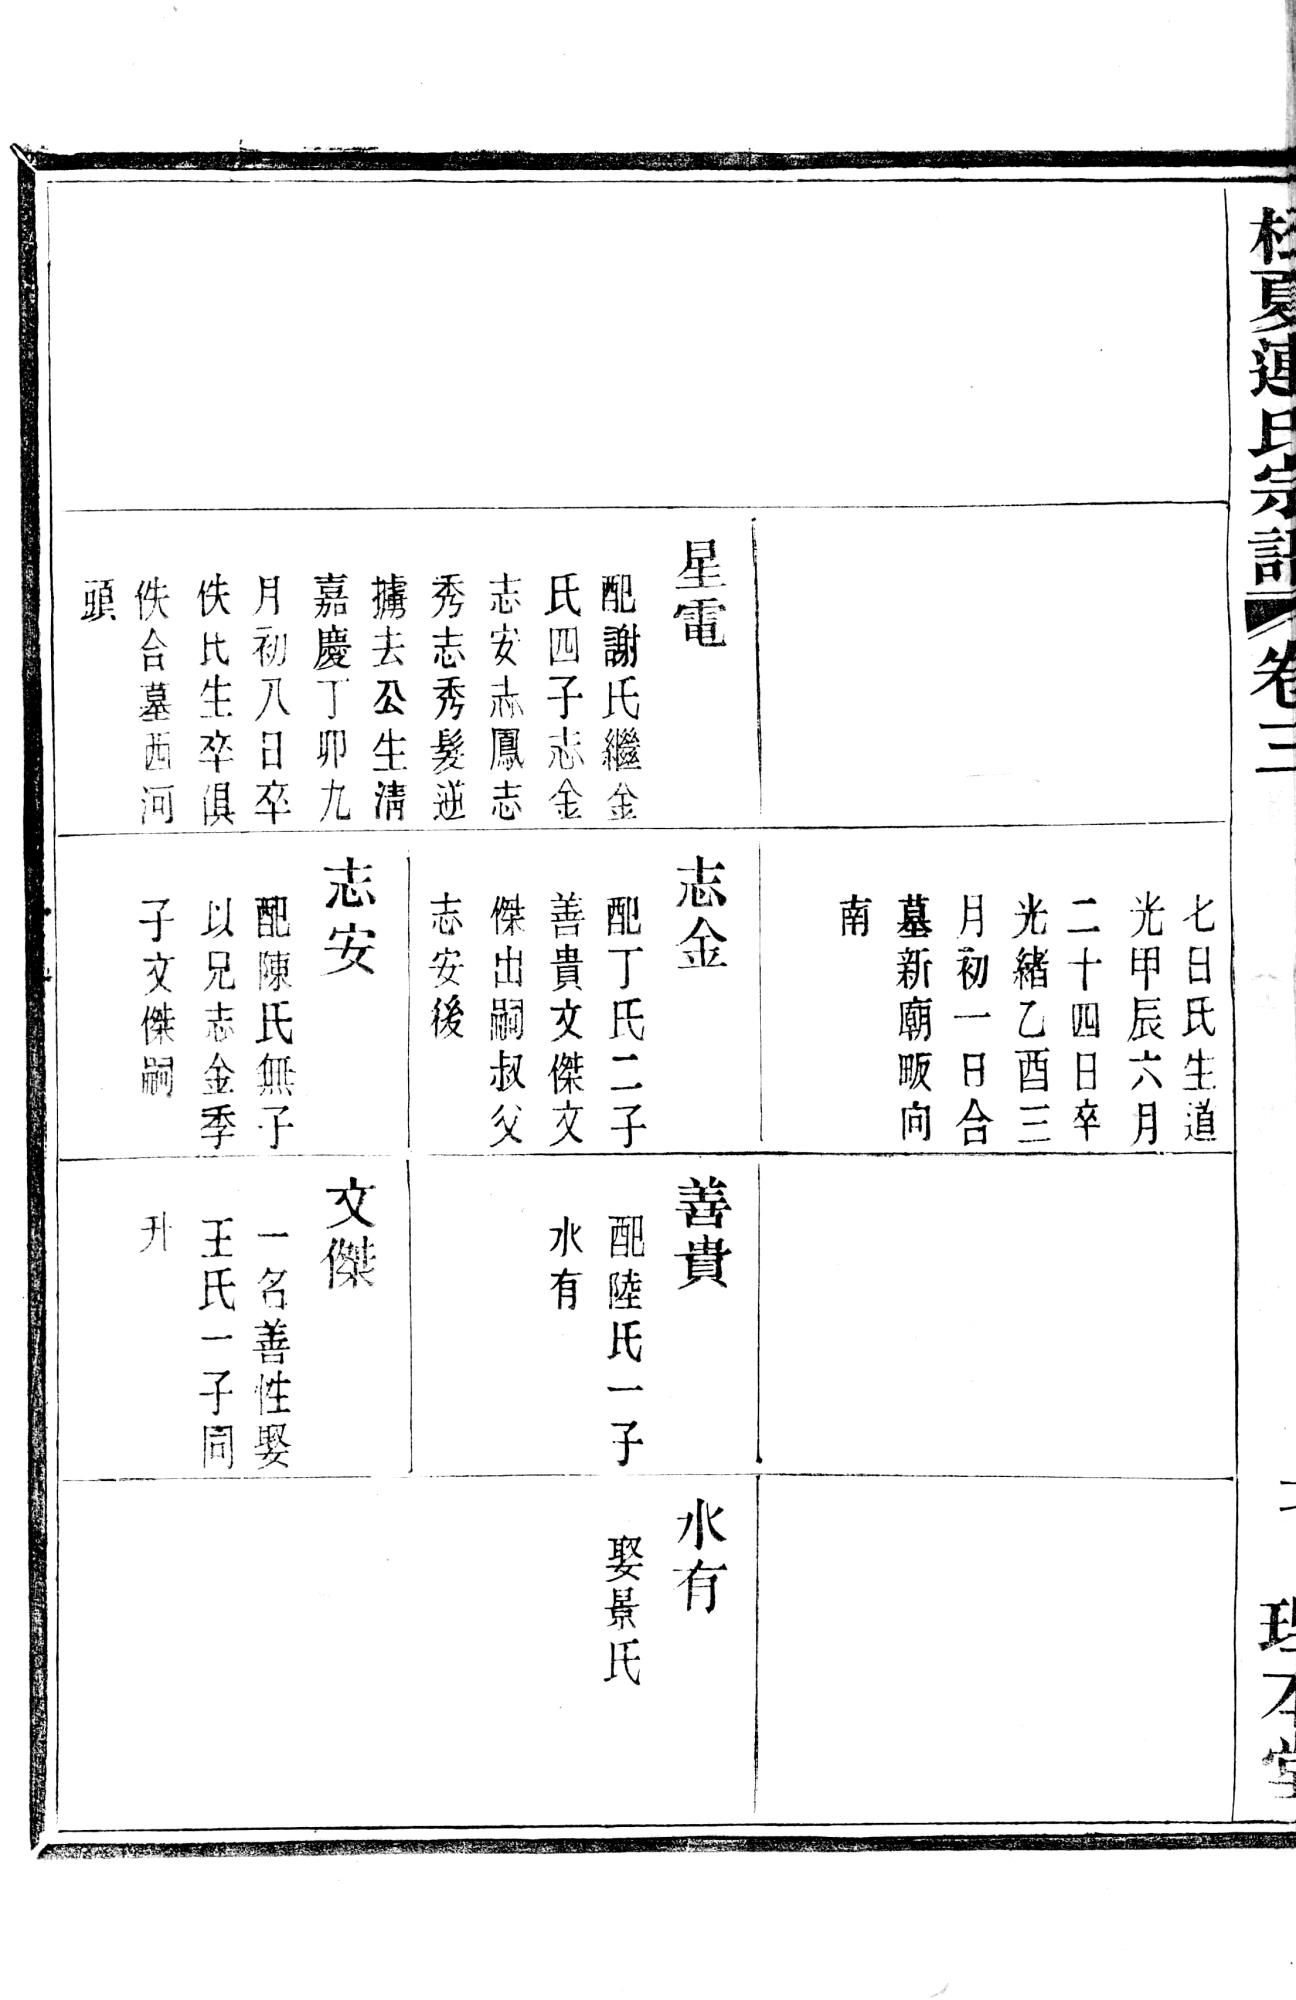 夏連氏宗譜 卷三
理本堂
星電
配謝氏繼金
氏四子志金
志安志鳳志
秀志秀髮逆
擄去公生淸
嘉慶丁卯九
月初八日卒
佚氏生卒俱
佚合墓西河
頭
七日氏生道
光甲辰六月
二十四日卒
光緒乙酉三
月初一日合
墓新廟畈向
南
志金
配丁氏二子
善貴文傑文
傑出嗣叔父
志安後
志安
配陳氏無子
以兄志金季
子文傑嗣
善貴
配陸氏一子
水有
文傑
一名善性娶
王氏一子同
升
水有
娶景氏